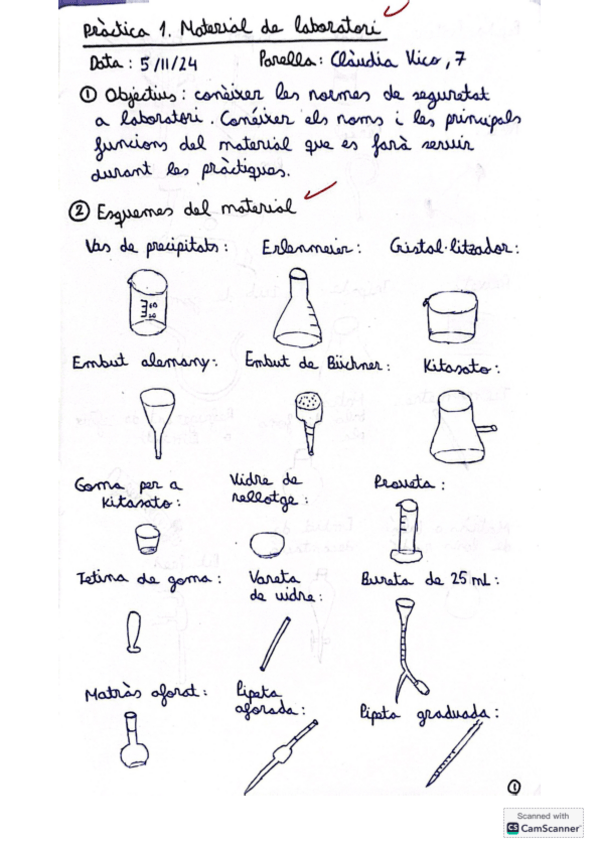 Pràctica 1. Material de laboratori
Data: 5/11/24 Parella: Clàudia Vico, 7
① Objectius: conèixer les normes de seguretat
a laboratori. Conéixer els noms i les principals
funcions del material que es farà servir
durant les pràctiques.
② Esquemes del material
Vas de precipitats: Erlenmeier: Cristal·litzador:
Embut alemany: Embut de Büchner: Kitasato:
Goma per a
Kitasato:
Vidre de
rellotge:
Proveta:
Tetina de goma:
Vareta
de vidre:
Bureta de 25 mL:
Matràs aforat:
Pipeta
aforada:
Pipeta graduada:
①
Scanned with
CS CamScanner